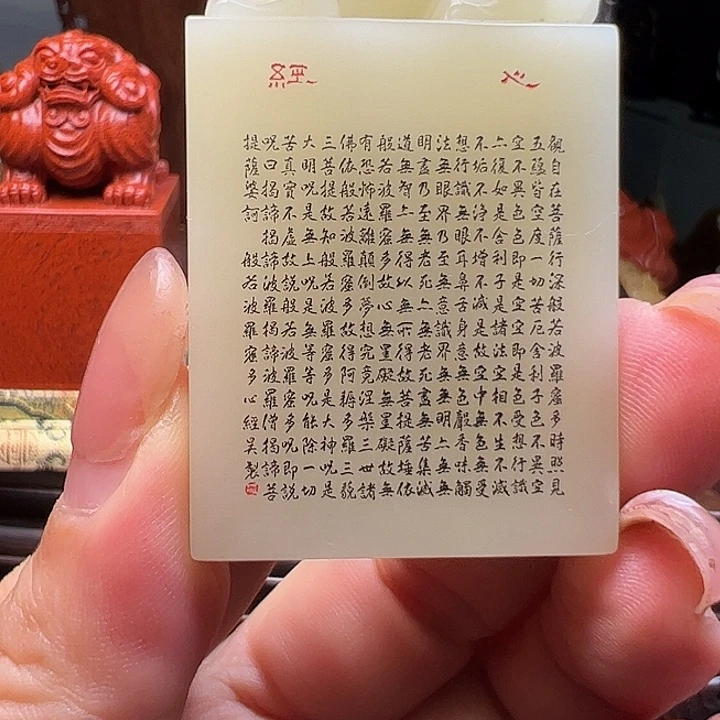 心經
觀自在菩薩行深般若波羅蜜多時照見
五蘊皆空度一切苦厄舍利子色不異空
空不異色色即是空空即是色受想行識
亦復如是舍利子是諸法空相不生不滅
不垢不淨不增不減是故空中無色無受
想行識無眼耳鼻舌身意無色聲香味觸
法無眼界乃至無意識界無無明亦無無
明盡乃至無老死亦無老死盡無苦集滅
道無智亦無得以無所得故菩提薩埵依
般若波羅蜜多故心無罣礙無罣礙故無
有恐怖遠離顛倒夢想究竟涅槃三世諸
佛依般若波羅蜜多故得阿耨多羅三藐
三菩提故知般若波羅蜜多是大神呪是
大明呪是無上呪是無等等呪能除一切
苦真實不虛故說般若波羅蜜多呪即說
呪曰揭諦揭諦波羅揭諦波羅僧揭諦菩
提薩婆訶 般若波羅蜜多心經吳製